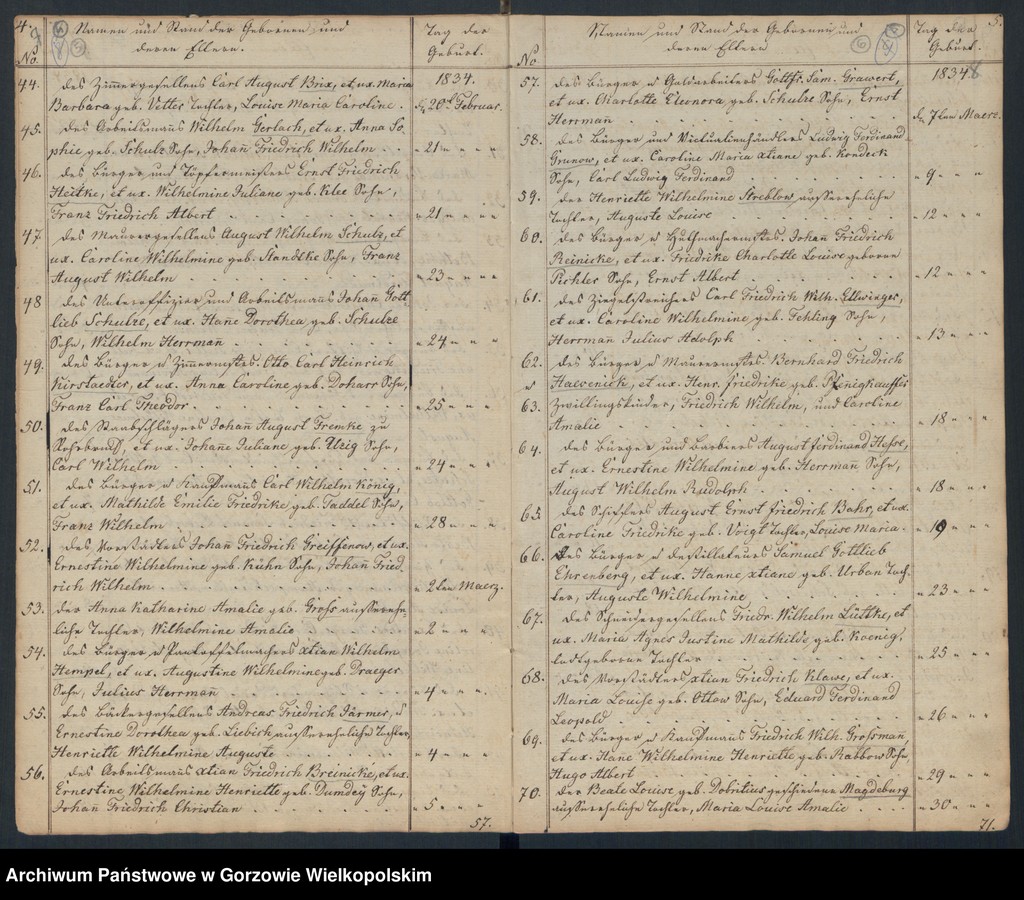 4.
Namen und Stand der Gebornen und
deren Eltern.
Tag der
Geburt.
No.
1834.
44. des Zimmergesellens Carl August Brix, et ux. Maria
Barbara geb. Vetter Tochter, Louise Maria Caroline.
d. 20t Februar.
45. des Arbeitsmanns Wilhelm Gerlach, et ux. Anna So
phie geb. Schulz Sohn, Johañ Friedrich Wilhelm
" 21 " " "
46. des Bürger und Töpfermeisters Ernst Friedrich
Heitke, et ux. Wilhelmine Juliane geb. Klee Sohn,
Franz Friedrich Albert
" 21 " " "
47. des Maurergesellens August Wilhelm Schulz, et
ux. Caroline Wilhelmine geb. Handtke Sohn, Franz
August Wilhelm
" 23 " " "
48 des Unteroffizier und Arbeitsmañs Johañ Gott
lieb Schulze, et ux. Hañe Dorothea geb. Schulze
Sohn, Wilhelm Herrman
" 24 " " "
49. des Bürger u Zimmermstrs. Otto Carl Heinrich
Kirstaedter, et ux. Anna Caroline geb. Doharr Sohn,
Franz Carl Theodor.
" 25 " " "
50. des Johañ August Fremke zu
et ux. Johañe Juliane geb. Utzig Sohn,
Carl Wilhelm
" 24 " " "
51. des Bürger u Kauffmans Carl Wilhelm König,
et ux. Mathilde Emilie Friedrike geb. Taddel Sohn,
Franz Wilhelm
" 28 " " "
52. des Vorstädters Johañ Friedrich Greiffenow, et ux.
Ernestine Wilhelmine geb. Kuhn Sohn, Johañ Fried
rich Wilhelm
" 2ten Maerz.
53. der Anna Katharine Amalie geb. Gross ausserehe-
liche Tochter, Wilhelmine Amalie
" 2 " " "
54. des Bürger u Pantoffelmachers xtian Wilhelm
Hempel, et ux. Augustine Wilhelmine geb. Draeger
Sohn, Julius Herrmañ
" 4 " " "
55. des Bäckergesellens Andreas Friedrich Järmer, u
Ernestine Dorothea geb. Liebich aussereheliche Tochter,
Henriette Wilhelmine Auguste
" 4 " " "
56. des Arbeitsmañs xtian Friedrich Breinicke, et ux.
Ernestine Wilhelmine Henriette geb. Dumdeÿ Sohn,
Johañ Friedrich Christian
" 5 " " "
57.
5.
Namen und Stand der Gebornen und
deren Eltern
Tag der
Geburt.
No
1834
57. des Bürger u Goldarbeiters Gottfr. Sam. Grawert,
et ux. Charlotte Eleonora, geb. Schulze Sohn, Ernst
Herrman
d. 7ten Maerz.
58. des Bürger und Victualienhändlers Ludwig Ferdinand
Grunow, et ux. Caroline Maria xtiane geb. Kondeck
Sohn, Carl Ludwig Ferdinand
" 9 " " "
59. der Henriette Wilhelmine Streblow aussereheliche
Tochter, Auguste Louise
" 12 " " "
60. des Bürger u Huthmachermstrs. Johañ Friedrich
Reinicke, et ux. Friedrike Charlotte Louise geboren
Richter Sohn, Ernst Albert
" 12 " " "
61. des Ziegelstreichers Carl Friedrich Wilh. Ellwinger,
et ux. Caroline Wilhelmine geb. Fehling Sohn,
Herrman Julius Adolph
" 13 " " "
62. des Bürger u Maurermstrs. Bernhard Friedrich
u Halvenick, et ux. Henr. friedrike geb. Pfenigkauffer
63. Zwillingskinder, Friedrich Wilhelm, und Caroline
Amalie
" 18 " "
64. des Bürger und Barbiers August ferdinand Hesse,
et ux. Ernestine Wilhelmine geb. Herrmañ Sohn,
August Wilhelm Rudolph
" 18 " " "
65. des Schiffers August Ernst friedrich Bahr, et ux.
Caroline Friedrike geb. Voigt Tochter, Louise Maria.
" 19 " " "
66. des Bürger u Destillateurs Samuel Gottlieb
Ehrenberg, et ux. Hanne xtiane geb. Urban Toch-
ter, Auguste Wilhelmine
" 23 " " "
67. des Schneidergesellens Friedr. Wilhelm Lüttke, et
ux. Maria Agnes Justine Mathilde geb. Koenig,
todtgeborne Tochter
" 25 " " "
68. des Vorstädters xtian Friedrich Klawe, et ux.
Maria Louise geb. Ottow Sohn, Eduard Ferdinand
Leopold
" 26 " " "
69. des Bürger u Kauffmans Friedrich Wilh. Grossman,
et ux. Hañe Wilhelmine Henriette geb. Rabbow Sohn
Hugo Albert
" 29 " " "
70. der Beate Louise geb. Dobritius geschiedene Magdeburg
aussereheliche Tochter, Maria Louise Amalie
" 30 " " "
71.
Archiwum Państwowe w Gorzowie Wielkopolskim